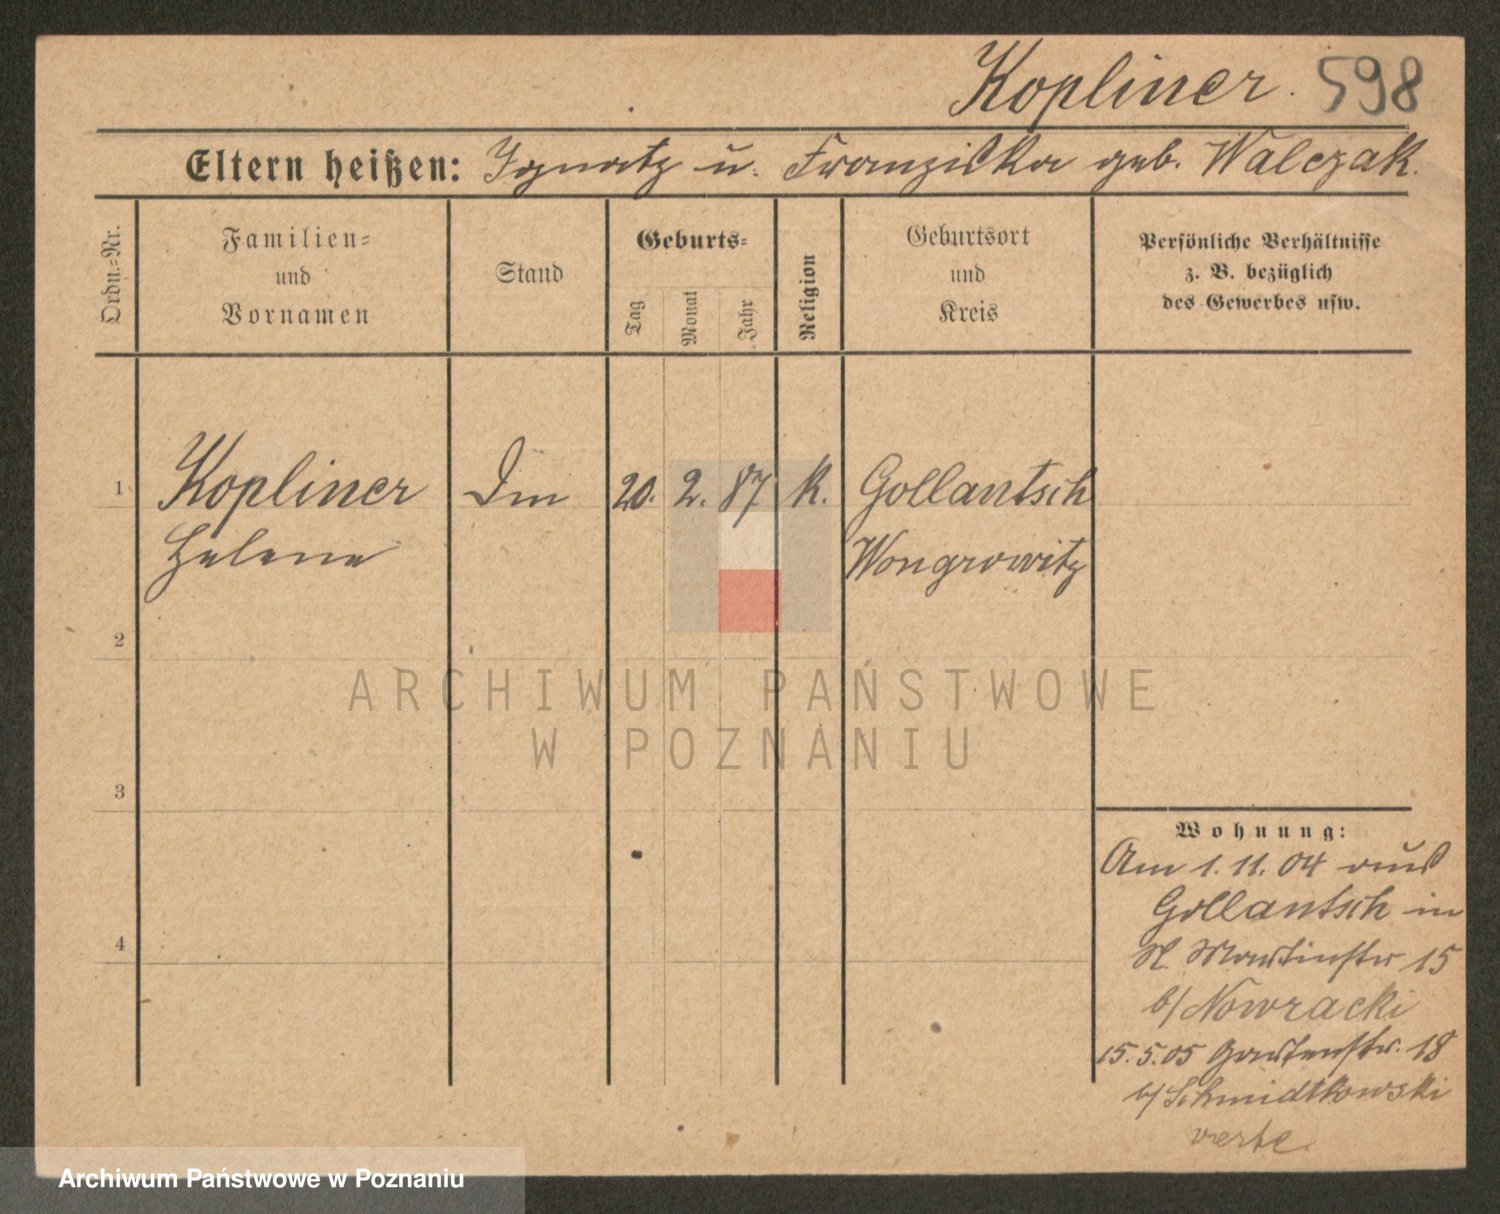 Kopliner. 598
Eltern heißen: Ignatz u. Franziska geb. Walczak.
Ordn.-Nr.
Familien-
und
Vornamen
Stand
Geburts-
Tag
Monat
Jahr
Religion
Geburtsort
und
Kreis
Persönliche Verhältnisse
z. B. bezüglich
des Gewerbes usw.
1 Kopliner 20. 2. 87 k. Gollantsch
Helene Wongrowitz
2
ARCHIWUM PAŃSTWOWE
W POZNANIU
3
Wohnung:
Am 1. 11. 04 aus
Gollantsch in
St. Martinstr 15
b/ Nowracki
4
15. 5. 05 Gartenstr. 18
b/ Schmidtkowski
verte.
Archiwum Państwowe w Poznaniu